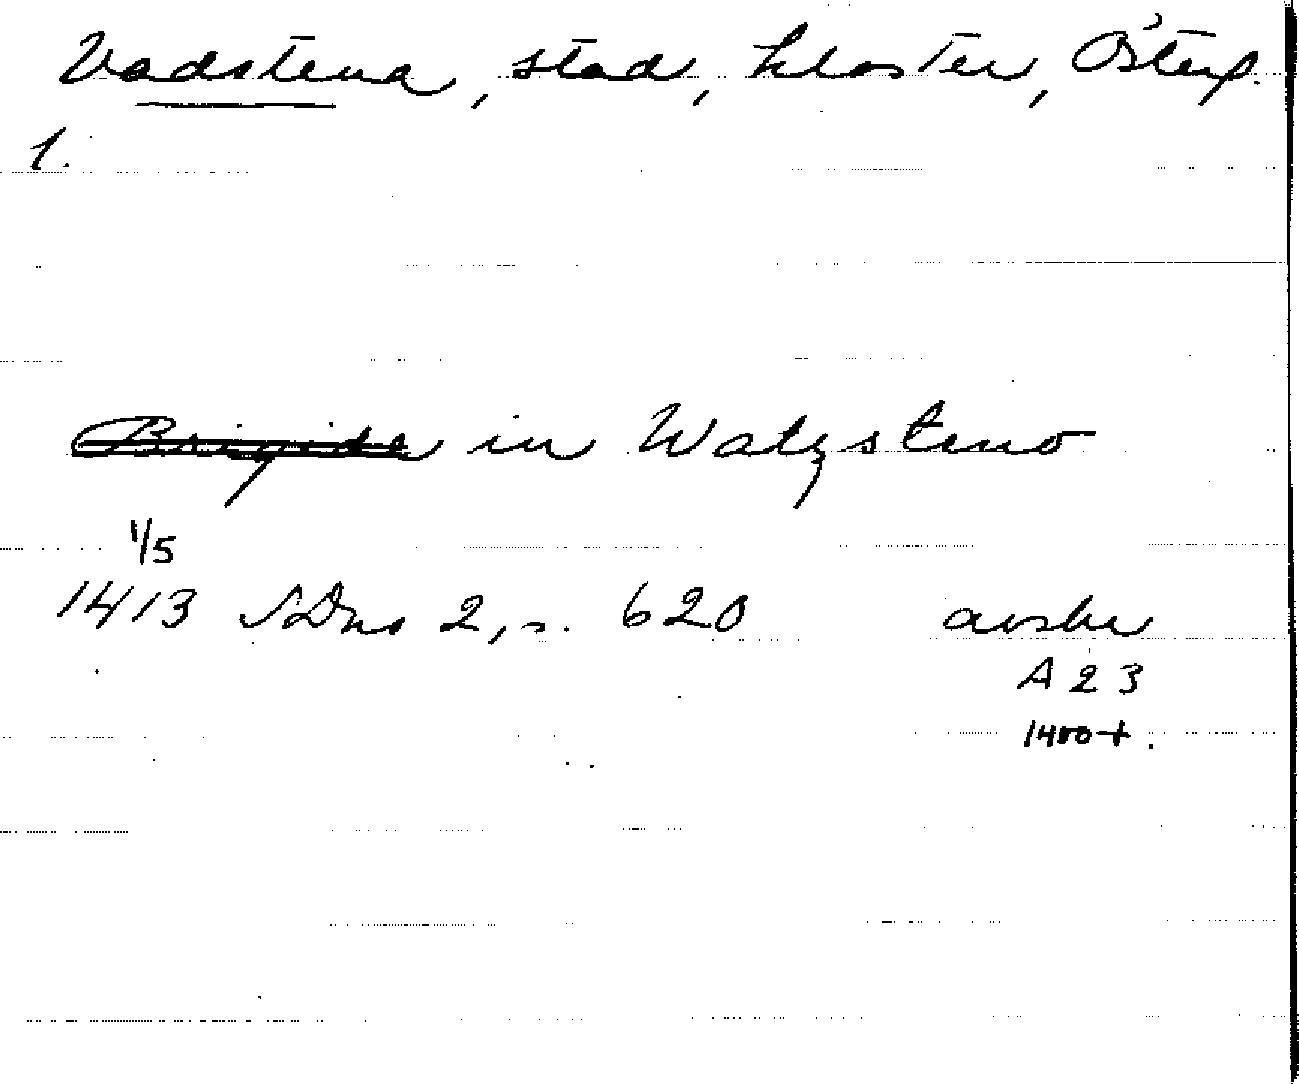 Vadstena, stad, kloster, Österg.
1.
Brigida in Watzsteno
1/5
1413 SDns 2, s. 620 avskr
A 23
1400+.